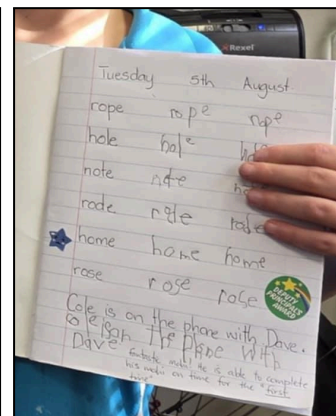 Rexel
Tuesday 5th August
rope rope rope
hole hole
note note
rode rode rode
home home home
rose rose rose
DEPUTY
PRINCIPAL'S
AWARD
Cole is on the phone with Dave.
The phone with
Dave
He is able to complete
his on time for the first
time"